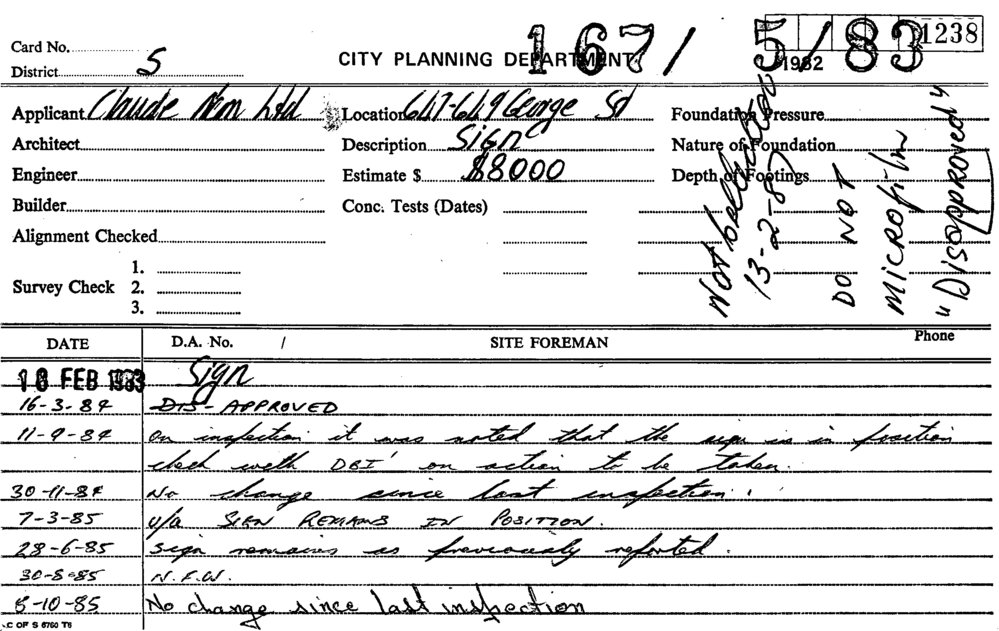 167/5/83
1238
Card No.
CITY PLANNING DEPARTMENT
1982
District S
Applicant Claude Neon Ltd
Location 647-649 George St
Foundation Pressure
Architect
Description Sign
Nature of Foundation
Engineer
Estimate $ $8000
Depth of Footings
Builder
Conc. Tests (Dates)
Alignment Checked
Survey Check
1.
2.
3.
Not
13-2-87
DO NOT
microfilm
"Disapproved"
DATE D.A. No. / SITE FOREMAN Phone
18 FEB 1983 Sign
16-3-84 DIS-APPROVED
11-9-84 On inspection it was noted that the sign is in position
check with DBI' on action to be taken.
30-11-84 No change since last inspection.
7-3-85 u/a SIGN REMAINS IN POSITION.
28-6-85 Sign remains as previously reported.
30-8-85 N.F.W.
8-10-85 No change since last inspection
C OF S 6760 T6